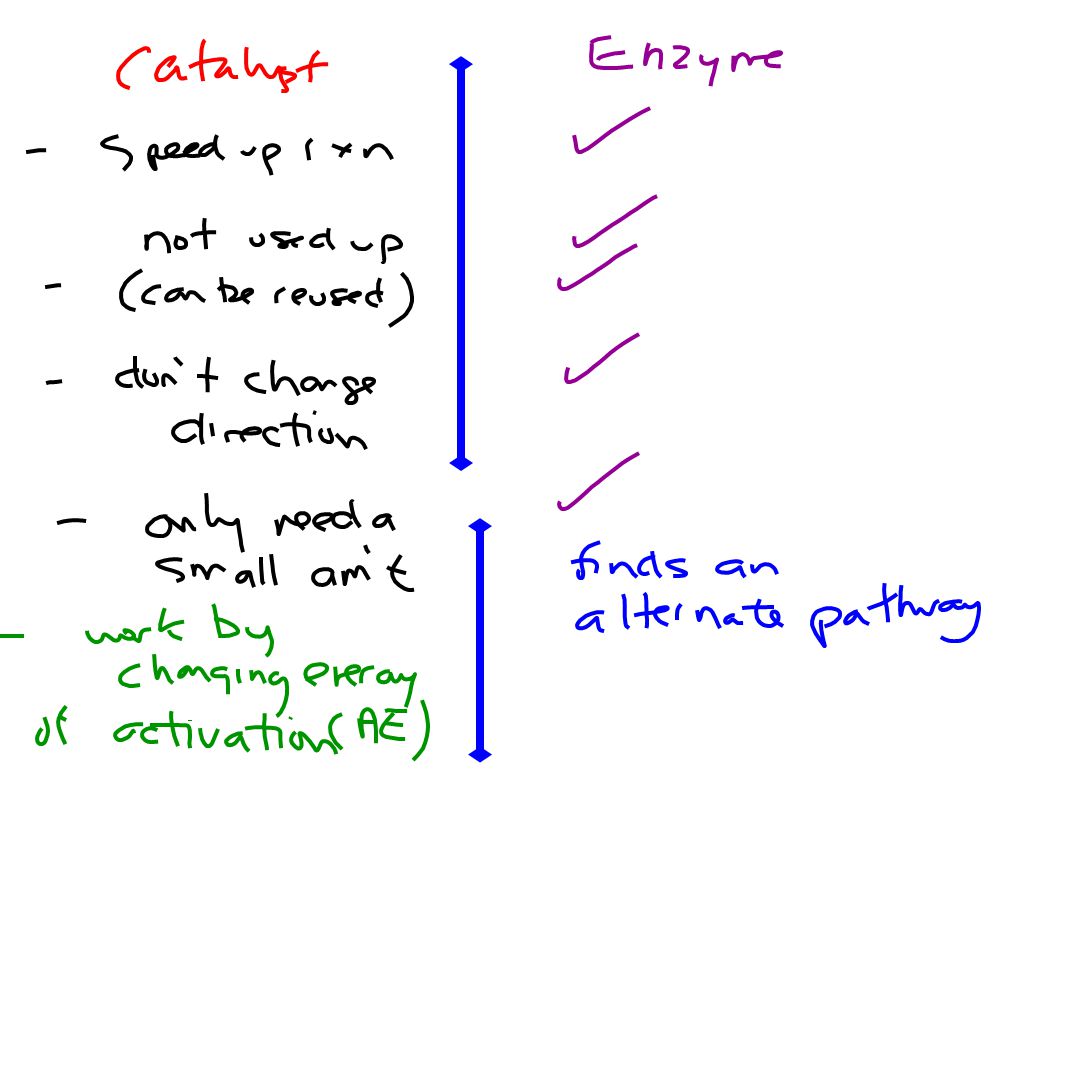 Catalyst
Enzyme
- Speed up rxn
not used up
- (can be reused)
- don't change
direction
- only need a
small am't
finds an
alternate pathway
- work by
changing energy
of activation (AE)